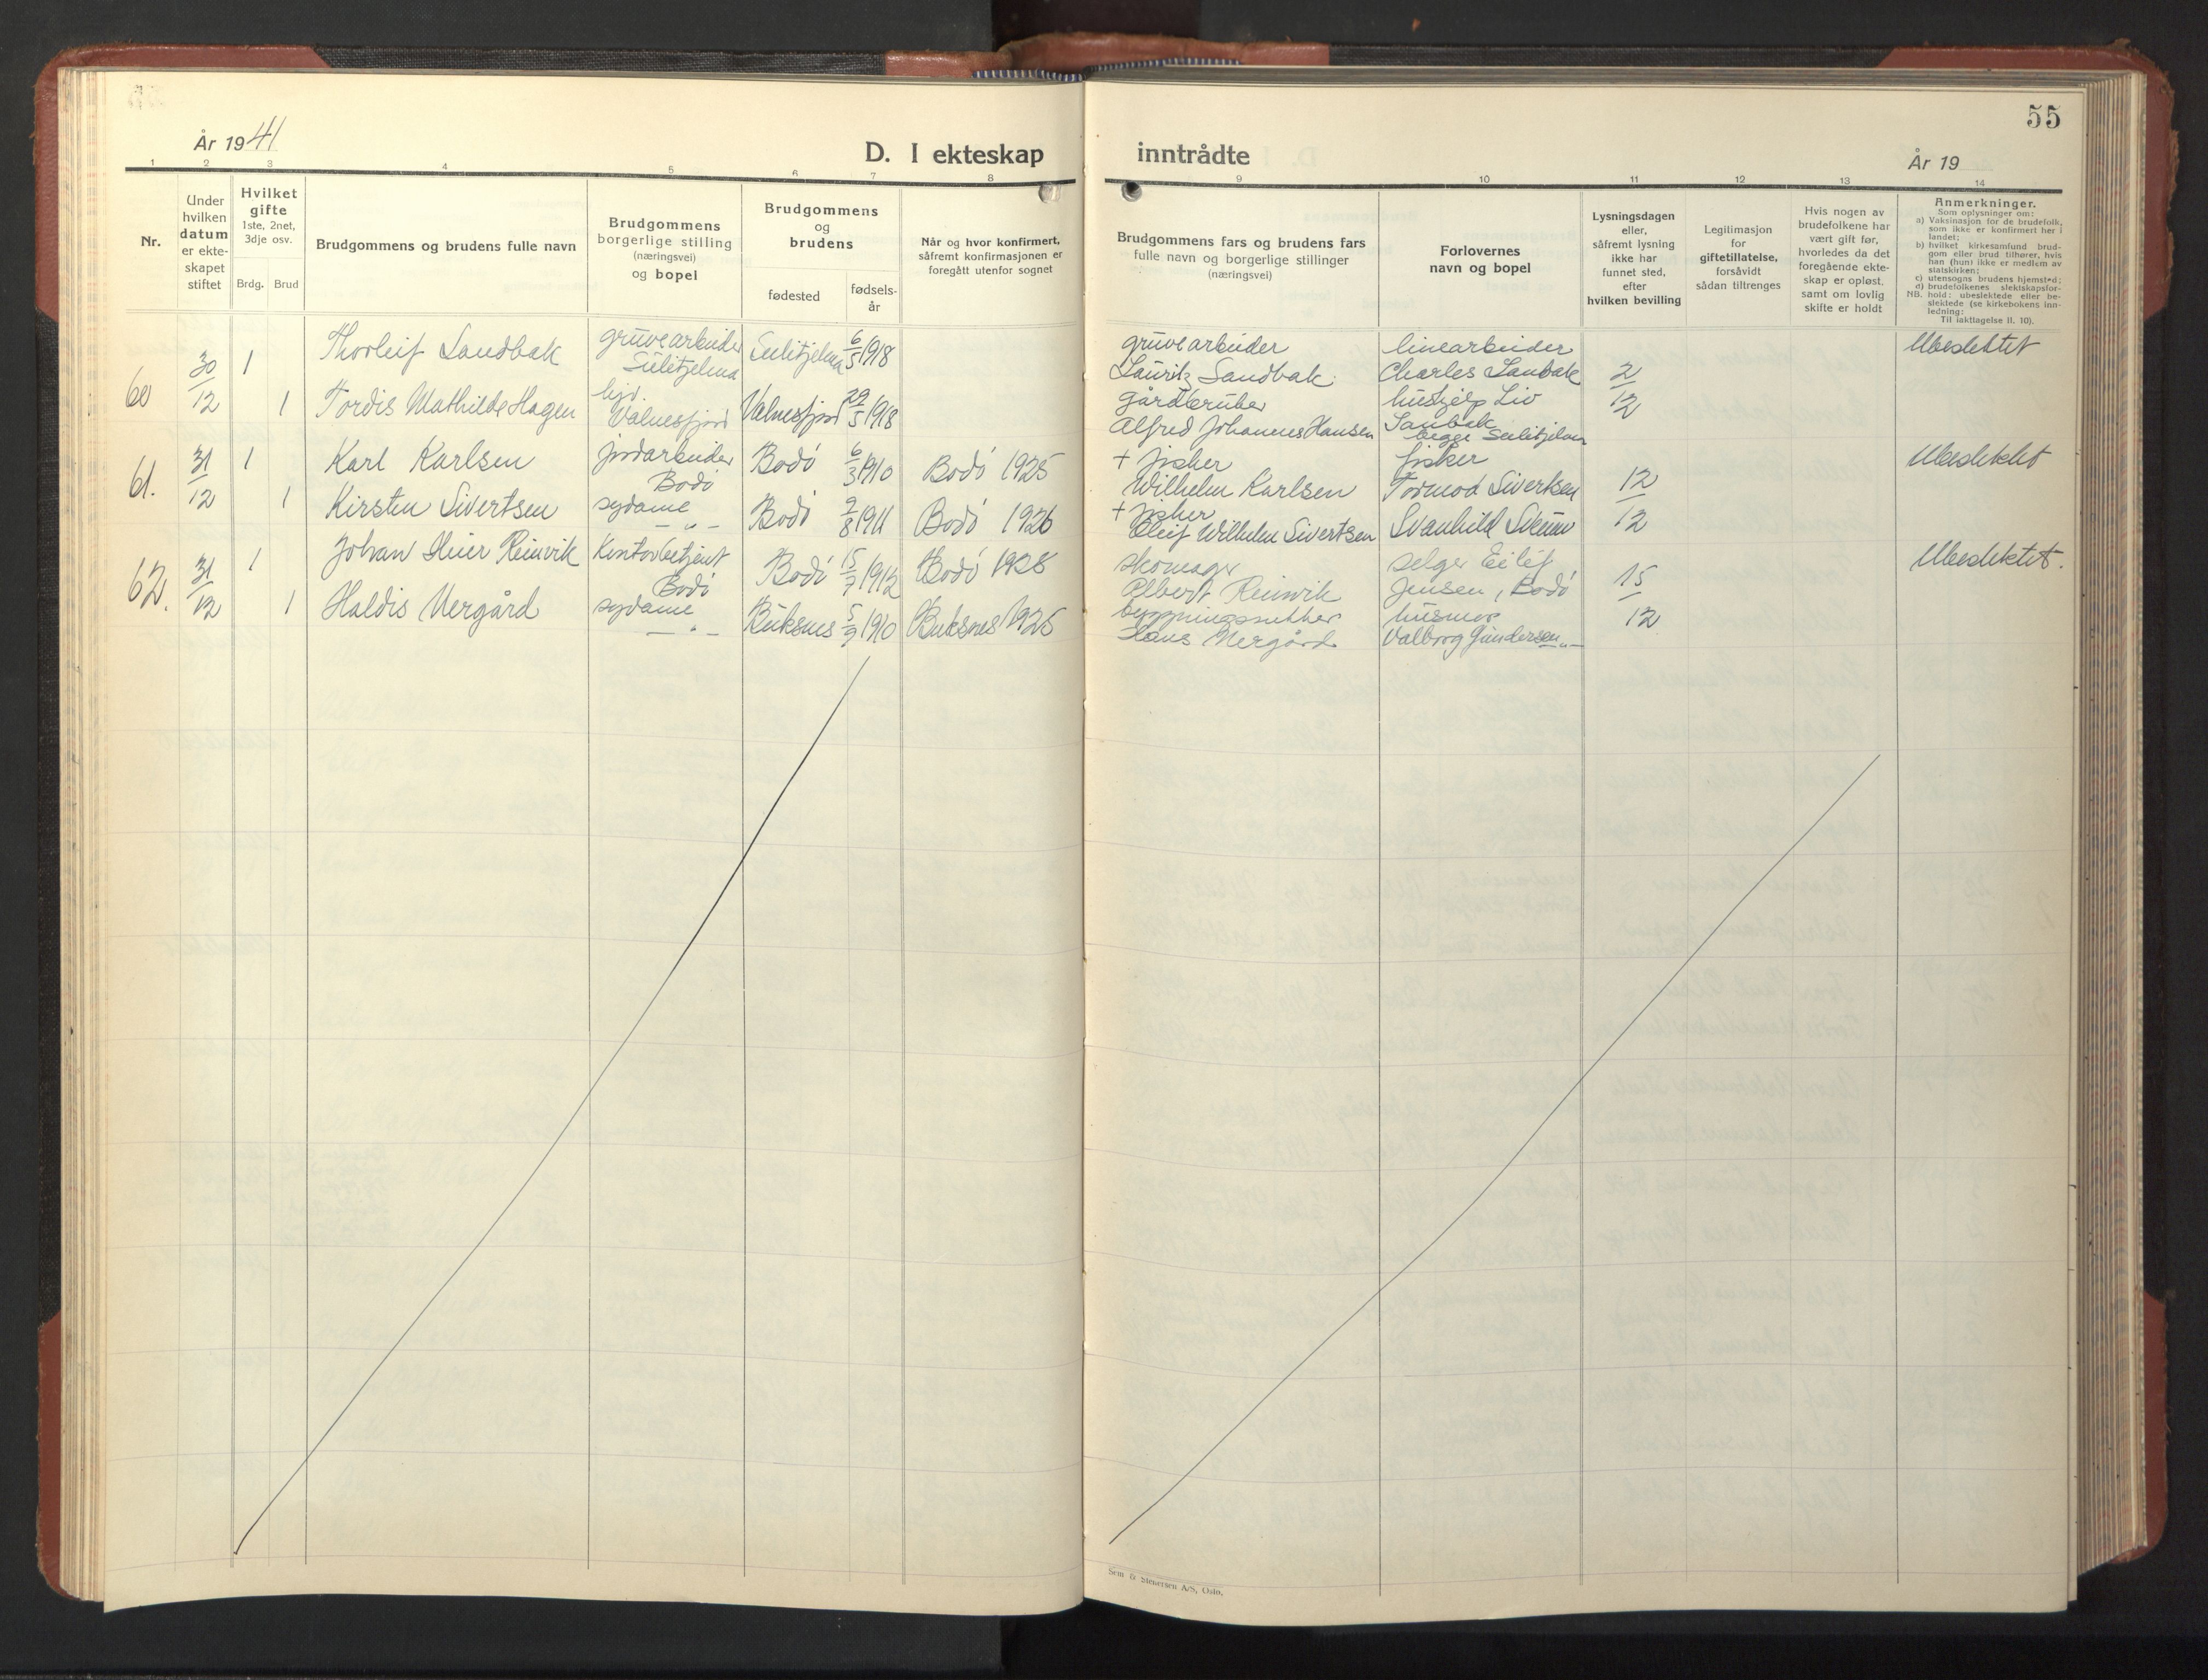 55
År 1941
D. I ekteskap inntrådte
År 19
1 2 3 4 5 6 7 8 9 10 11 12 13 14
Nr.
Under
hvilken
datum
er ekte-
skapet
stiftet
Hvilket
gifte
1ste, 2net,
3dje osv.
Brdg. Brud
Brudgommens og brudens fulle navn
Brudgommens
borgerlige stilling
(næringsvei)
og bopel
Brudgommens
og
brudens
fødested
fødsels-
år
Når og hvor konfirmert,
såfremt konfirmasjonen er
foregått utenfor sognet
Brudgommens fars og brudens fars
fulle navn og borgerlige stillinger
(næringsvei)
Forlovernes
navn og bopel
Lysningsdagen
eller,
såfremt lysning
ikke har
funnet sted,
efter
hvilken bevilling
Legitimasjon
for
giftetillatelse,
forsåvidt
sådan tiltrenges
Hvis nogen av
brudefolkene har
vært gift før,
hvorledes da det
foregående ekte-
skap er opløst,
samt om lovlig
skifte er holdt
Anmerkninger.
Som oplysninger om:
a) Vaksinasjon for de brudefolk,
som ikke er konfirmert her i
landet;
b) hvilket kirkesamfund brud-
gom eller brud tilhører, hvis
han (hun) ikke er medlem av
statskirken;
c) utensogns brudens hjemsted;
d) brudefolkenes slektskapsfor-
NB. hold: ubeslektede eller be-
slektede (se kirkebokens inn-
ledning:
Til iakttagelse II. 10).
60
30/12
1
Thorleif Sandbak
gruvearbeider
Sulitjelma
Sulitjelma 6/5 1918
gruvearbeider
Lauritz Sandbak
linearbeider
Charles Sanbak
2/12
Ubeslektet
1
Tordis Mathilde Hagen
Valnesfjord
Valnesfjord 29/5 1918
gårdbruker
Alfred Johannes Hansen
hushjelp Liv
Sanbak
begge Sulitjelma
61.
31/12
1
Karl Karlsen
jordarbeider
Bodö
Bodö 6/3 1910
Bodö 1925
+ fisker
Wilhelm Karlsen
fisker
Tormod Sivertsen
12/12
Ubeslektet
1
Kirsten Sivertsen
sydame
— „ —
Bodö 2/8 1911
Bodö 1926
+ fisher
Wilhelm Sivertsen
Svanhild
62.
31/12
1
Johan Reinvik
Kontorbetjent
Bodö
Bodö 15/7 1912
Bodö 1928
skomager
Albert Reinvik
selger Eilif
Jensen, Bodö
15/12
Ubeslektet.
1
Haldis Vergård
sydame
— „ —
Buksnes 5/9 1910
Buksnes 1925
Hans Vergård
husmor
Valborg Gundersen — „ —
Sem & Stenersen A/S, Oslo.